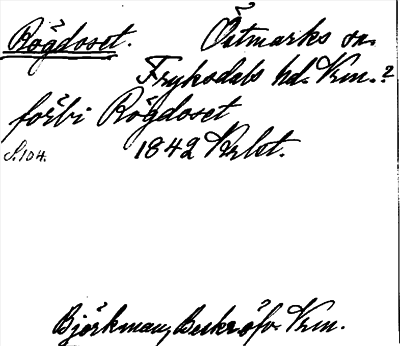 Rögdoset. Östmarks sn.
Fryksdals hd. Vrm.?
förbi Rögdoset
S. 104. 1842 Krbt.
Björkman, Beskröfv. Vrm.